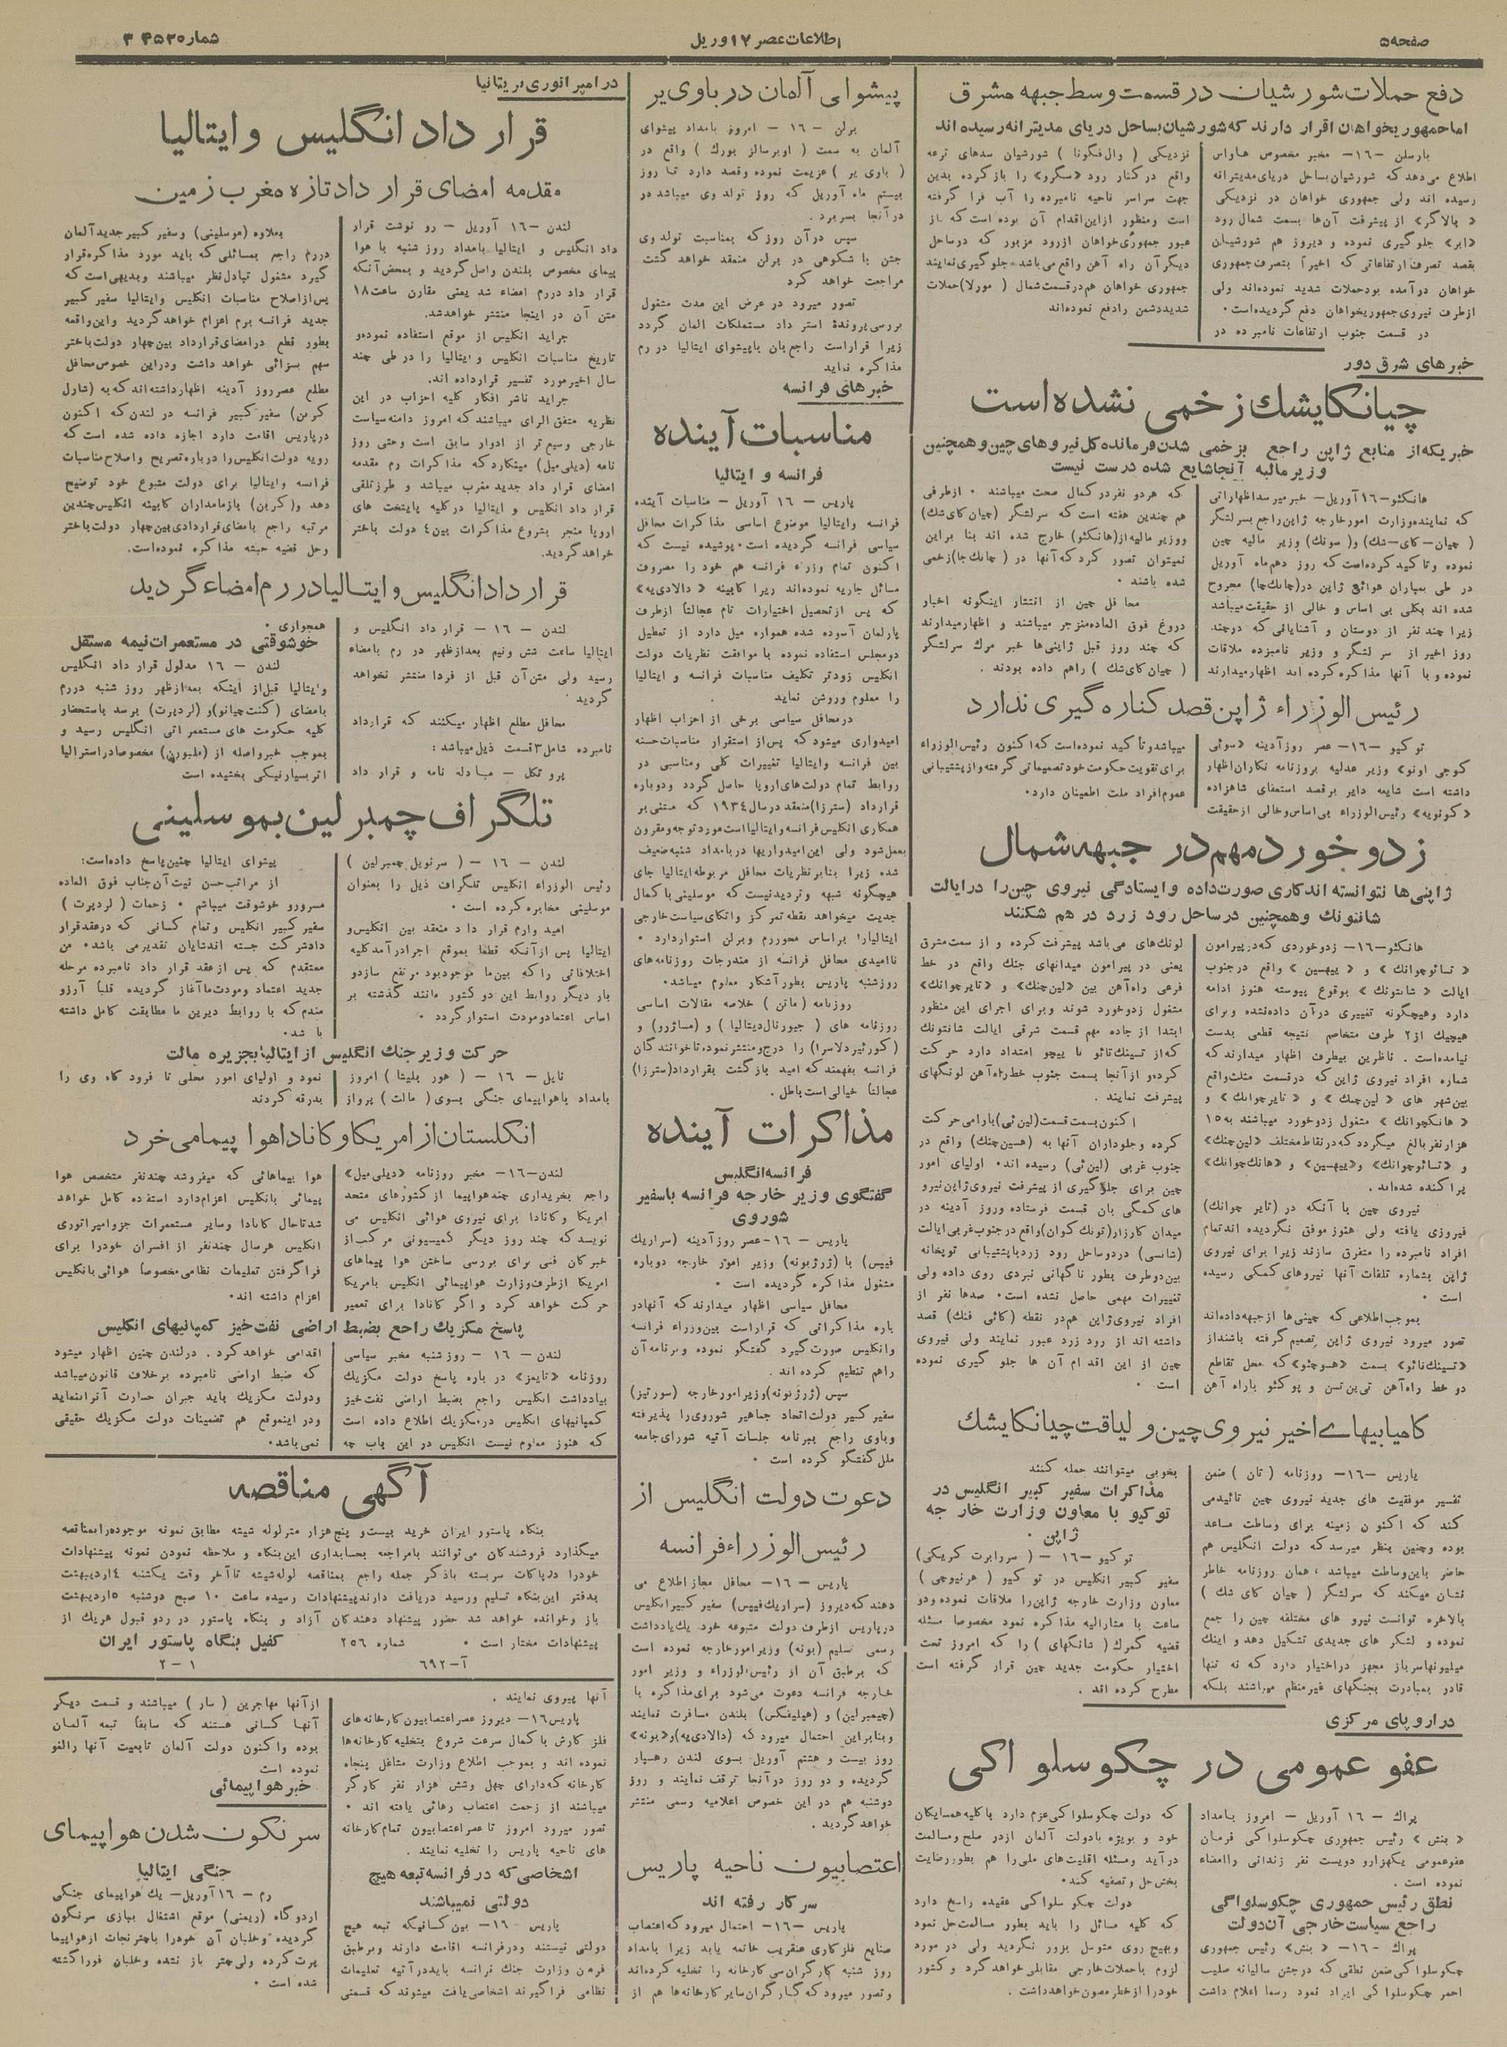 صفحه ۵
اطلاعات عصر ۱۷ آوریل
شماره ۳۵۳۰
دفع حملات شورشیان در قسمت وسط جبهه مشرق
اما جمهوریخواهان اقرار دارند که شورشیان بساحل دریای مدیترانه رسیده اند
بارسلن -۱۶- مخبر مخصوص هاواس
اطلاع میدهد که شورشیان بساحل دریای مدیترانه
رسیده اند ولی جمهوری خواهان در نزدیکی
«بالاگر» از پیشرفت آن‌ها بسمت شمال رود
«ابر» جلو گیری نموده و دیروز هم شورشیان
بقصد تصرف ارتفاعاتی که اخیراً بتصرف جمهوری
خواهان در آمده بود حملات شدید نموده‌اند ولی
از طرف نیروی جمهوریخواهان دفع گردیده است.
در قسمت جنوب ارتفاعات نامبرده در
نزدیکی (وال فگونا) شورشیان سدهای ترعه
واقع در کنار رود «سگرو» را باز کرده بدین
جهت سراسر ناحیه نامبرده را آب فرا گرفته
است و منظور از این اقدام آن بوده است که از
عبور جمهوری خواهان از رود مزبور که در ساحل
دیگر آن راه آهن واقع می‌باشد، جلو گیری نمایند
جمهوری خواهان هم در قسمت شمال (مورلا) حملات
شدید دشمن را دفع نموده‌اند
خبرهای شرق دور
چیانکایشک زخمی نشده است
خبریکه از منابع ژاپن راجع بزخمی شدن فرمانده کل نیروهای چین و همچنین
وزیر مالیه آنجا شایع شده درست نیست
هانکئو-۱۶ آوریل- خبر میرسد اظهاراتی
که نماینده وزارت امور خارجه ژاپن راجع بسرلشگر
(چیان-کای-شک) و (سونک) وزیر مالیه چین
نموده و تا کید کرده است که روز دهم ماه آوریل
در طی بمباران هوائی ژاپن در (چانک‌چا) مجروح
شده اند بکلی بی اساس و خالی از حقیقت میباشد
زیرا چند نفر از دوستان و آشنایانی که در چند
روز اخیر از سر لشگر و وزیر نامبرده ملاقات
نموده و با آنها مذاکره کرده اند اظهار میدارند
که هر دو نفر در کمال صحت میباشند. از طرفی
هم چندین هفته است که سر لشگر (چیان کای شک)
و وزیر مالیه از (هانکئو) خارج شده اند بنا بر این
نمیتوان تصور کرد که آنها در (چانک‌چا) زخمی
شده باشند.
محافل چین از انتشار اینگونه اخبار
دروغ فوق العاده منزجر میباشند و اظهار میدارند
که چند روز قبل ژاپنی‌ها خبر مرک سر لشگر
(چیان کای شک) را هم داده بودند.
رئیس الوزراء ژاپن قصد کناره گیری ندارد
توکیو -۱۶- عصر روز آدینه «سوئی
کوجی اونو» وزیر عدلیه بروزنامه نگاران اظهار
داشته است شایعه دایر بر قصد استعفای شاهزاده
«کونویه» رئیس الوزراء بی اساس و خالی از حقیقت
میباشد و تأکید نموده است که اکنون رئیس الوزراء
برای تقویت حکومت خود تصمیماتی گرفته و از پشتیبانی
عموم افراد ملت اطمینان دارد.
زد و خورد مهم در جبهه شمال
ژاپنی ها نتوانسته اند کاری صورت داده و ایستادگی نیروی چین را در ایالت
شانتونک و همچنین در ساحل رود زرد در هم شکنند
هانکئو -۱۶- زد و خوردی که در پیرامون
«تسائو چوانک» و «ییهسین» واقع در جنوب
ایالت «شانتونک» بوقوع پیوسته هنوز ادامه
دارد و هیچگونه تغییری در آن داده نشده و برای
هیچیک از ۲ طرف متخاصم نتیجه قطعی بدست
نیامده است. ناظرین بیطرف اظهار میدارند که
شماره افراد نیروی ژاپن که در قسمت مثلث واقع
بین شهر های «لین‌چنک» و «تایرچوانک» و
«هانکچوانک» مشغول زد و خورد میباشند به ۱۵
هزار نفر بالغ میگردد که در نقاط مختلف «لین‌چنک»
و «تسائوچوانک» و «ییهسین» و «هانک‌چوانک»
پراکنده شده‌اند.
نیروی چین با آنکه در (تایر چوانک)
فیروزی یافته ولی هنوز موفق نگردیده اند تمام
افراد نامبرده را متفرق سازند زیرا برای نیروی
ژاپن بشماره تلفات آنها نیروهای کمکی رسیده
است.
بموجب اطلاعی که چینی ها از جبهه داده‌اند
تصور میرود نیروی ژاپن تصمیم گرفته باشند از
«تسینک‌تائو» بسمت «هسوچئو» که محل تقاطع
دو خط راه آهن تی‌ین‌تسن و پوکئو با راه آهن
لونک‌های می باشد پیشرفت کرده و از سمت مشرق
یعنی در پیرامون میدانهای جنک واقع در خط
فرعی راه‌آهن بین «لین‌چنک» و «تایرچوانک»
مشغول زد و خورد شوند و برای اجرای این منظور
ابتدا از جاده مهم قسمت شرقی ایالت شانتونک
که از تسینک‌تائو تا پیچو امتداد دارد حرکت
کرده و از آنجا بسمت جنوب خط راه‌آهن لونکهای
پیشرفت نمایند.
اکنون بسمت قسمت (لین‌ئی) بارامی حرکت
کرده و جلوداران آنها به (هسین‌چنک) واقع در
جنوب غربی (لین‌ئی) رسیده اند. اولیای امور
چین برای جلوگیری از پیشرفت نیروی ژاپن نیرو
های کمکی بان قسمت فرستاده و روز آدینه در
میدان کارزار (تونک کوان) واقع در جنوب غربی ایالت
(شانسی) در دو ساحل رود زرد با پشتیبانی توپخانه
بین دو طرف بطور ناگهانی نبردی روی داده ولی
تغییرات مهمی حاصل نشده است. صدها نفر از
افراد نیروی ژاپن هم در نقطه (کائی فنک) قصد
داشته اند از رود زرد عبور نمایند ولی نیروی
چین از این اقدام آن ها جلو گیری نموده
است.
کامیابیهای اخیر نیروی چین و لیاقت چیانکایشک
پاریس -۱۶- روزنامه (تان) ضمن
تفسیر موفقیت های جدید نیروی چین تائیدمی
کند که اکنون زمینه برای وساطت مساعد
بوده و چنین بنظر میرسد که دولت انگلیس هم
حاضر باین وساطت میباشد، همان روزنامه خاطر
نشان میکند که سرلشگر (چیان کای شک)
بالاخره توانست نیرو های مختلفه چین را جمع
نموده و لشگر های جدیدی تشکیل دهد و اینک
میلیونها سرباز مجهز در اختیار دارد که نه تنها
قادر بمبادرت بجنگهای غیر منظم میباشند بلکه
بخوبی میتوانند حمله کنند
مذاکرات سفیر کبیر انگلیس در
توکیو با معاون وزارت خارجه
ژاپن.
توکیو -۱۶- (سر رابرت کریگی)
سفیر کبیر انگلیس در توکیو (هرنیوچی)
معاون وزارت خارجه ژاپن را ملاقات نموده و دو
ساعت با مشارالیه مذاکره نمود مخصوصا مسئله
قضیه گمرک (شانگهای) را که امروز تحت
اختیار حکومت جدید چین قرار گرفته است
مطرح کرده اند.
در اروپای مرکزی
عفو عمومی در چکوسلواکی
پراک -۱۶ آوریل- امروز بامداد
«بنش» رئیس جمهوری چکوسلواکی فرمان
عفو عمومی یکهزار و دویست نفر زندانی را امضاء
نموده است.
نطق رئیس جمهوری چکوسلواکی
راجع سیاست خارجی آن دولت
پراک -۱۶- «بنش» رئیس جمهوری
چکوسلواکی ضمن نطقی که در جشن سالیانه صلیب
احمر چکوسلواکی ایراد نمود رسما اعلام داشت
که دولت چکوسلواکی عزم دارد با کلیه همسایگان
خود و بویژه با دولت آلمان از در صلح و مسالمت
در آید و مسئله اقلیت‌های ملی را هم بطور رضایت
بخش حل و تصفیه کند.
دولت چکوسلواکی عقیده راسخ دارد
که کلیه مسائل را باید بطور مسالمت حل نمود
و بهیچ روی متوسل بزور نگردید ولی در مورد
لزوم با حملات خارجی مقابلی خواهد کرد و کشور
خود را از خطر مصون خواهد داشت.
پیشوای آلمان در باوی‌یر
برلن -۱۶- امروز بامداد پیشوای
آلمان به سمت (اوبرسالز بورک) واقع در
(باوی یر) عزیمت نموده و قصد دارد تا روز
بیستم ماه آوریل که روز تولد وی میباشد در
در آنجا بسر برد.
سپس در آن روز که بمناسبت تولد وی
جشن با شکوهی در برلن منعقد خواهد گشت
مراجعت خواهد کرد
تصور میرود در عرض این مدت مشغول
بررسی پرونده استرداد مستملکات المان گردد
زیرا قرار است راجع بان با پیشوای ایتالیا در رم
مذاکره نماید
خبرهای فرانسه
مناسبات آینده
فرانسه و ایتالیا
پاریس -۱۶ آوریل- مناسبات آینده
فرانسه و ایتالیا موضوع اساسی مذاکرات محافل
سیاسی فرانسه گردیده است. پوشیده نیست که
اکنون تمام وزراء فرانسه هم خود را مصروف
مسائل جاریه نموده‌اند زیرا کابینه «دالادی‌یه»
که پس از تحصیل اختیارات تام عجالتاً از طرف
پارلمان آسوده شده همواره میل دارد از تعطیل
دو مجلس استفاده نموده با موافقت نظریات دولت
انگلیس زودتر تکلیف مناسبات فرانسه و ایتالیا
را معلوم و روشن نماید
در محافل سیاسی برخی از احزاب اظهار
امیدواری میشود که پس از استقرار مناسبات حسنه
بین فرانسه و ایتالیا تغییرات کلی و مناسبی در
روابط تمام دولت‌های اروپا حاصل گردد و دوباره
قرارداد (سترزا) منعقد در سال ۱۹۳۴ که مبتنی بر
همکاری انگلیس فرانسه و ایتالیا است مورد توجه و مقرون
بعمل شود ولی این امیدواریها در بامداد شنبه ضعیف
شده زیرا بنا بر نظریات محافل مربوطه ایتالیا جای
هیچگونه شبهه و تردید نیست که موسلینی با کمال
جدیت میخواهد نقطه تمرکز و اتکای سیاست خارجی
ایتالیا را بر اساس محور رم و برلن استوار دارد.
ناامیدی محافل فرانسه از مندرجات روزنامه‌های
روز شنبه پاریس بطور آشکار معلوم میباشد.
روزنامه (ماتن) خلاصه مقالات اساسی
روزنامه های (جیورنال دیتالیا) و (مساژرو) و
(کورئیر دلاسرا) را درج و منتشر نموده تا خوانندگان
فرانسه بفهمند که امید بازگشت بقرارداد (سترزا)
عجالتاً خیالی است باطل.
مذاکرات آینده
فرانسه انگلیس
گفتگوی وزیر خارجه فرانسه با سفیر
شوروی
پاریس -۱۶- عصر روز آدینه (سراریک
فیپس) با (ژرژبونه) وزیر امور خارجه دوباره
مشغول مذاکره گردیده است.
محافل سیاسی اظهار میدارند که آنها در
باره مذاکراتی که قرار است بین وزراء فرانسه
و انگلیس صورت گیرد گفتگو نموده و برنامه آن
را هم تنظیم کرده اند.
سپس (ژرژبونه) وزیر امور خارجه (سورتیز)
سفیر کبیر دولت اتحاد جماهیر شوروی را پذیرفته
و باوی راجع ببرنامه جلسات آتیه شورای جامعه
ملل گفتگو کرده است.
دعوت دولت انگلیس از
رئیس الوزراء فرانسه
پاریس -۱۶- محافل مجاز اطلاع می
دهند که دیروز (سراریک فیپس) سفیر کبیر انگلیس
در پاریس از طرف دولت متبوعه خود یک یادداشت
رسمی تسلیم (بونه) وزیر امور خارجه نموده است
که بر طبق آن از رئیس الوزراء و وزیر امور
خارجه فرانسه دعوت می‌شود برای مذاکره با
(چیمبرلین) و (هیلیفکس) بلندن مسافرت نمایند
و بنابراین احتمال میرود که (دالادی‌یه) و «بونه»
روز بیست و هشتم آوریل بسوی لندن رهسپار
گردیده و دو روز در آنجا توقف نمایند و روز
دوشنبه هم در این خصوص اعلامیه رسمی منتشر
خواهد گردید.
اعتصابیون ناحیه پاریس
سر کار رفته اند
پاریس -۱۶- احتمال میرود که اعتصاب
صنایع فلزکاری عنقریب خاتمه یابد زیرا بامداد
روز شنبه کارگران سی کارخانه را تخلیه کرده‌اند
و تصور میرود که کارگران سایر کارخانه‌ها هم از
در امپراتوری بریتانیا
قرار داد انگلیس و ایتالیا
مقدمه امضای قرار داد تازه مغرب زمین
لندن -۱۶ آوریل- رو نوشت قرار
داد انگلیس و ایتالیا بامداد روز شنبه با هوا
پیمای مخصوص بلندن واصل گردید و بمحض آنکه
قرار داد در رم امضاء شد یعنی مقارن ساعت ۱۸
متن آن در اینجا منتشر خواهد شد.
جراید انگلیس از موقع استفاده نموده و
تاریخ مناسبات انگلیس و ایتالیا را در طی چند
سال اخیر مورد تفسیر قرار داده اند.
جراید ناشر افکار کلیه احزاب در این
نظریه متفق الرای میباشند که امروز دامنه سیاست
خارجی وسیع تر از ادوار سابق است و حتی روز
نامه (دیلی میل) مینگارد که مذاکرات رم مقدمه
امضای قرار داد جدید مغرب میباشد و طرز تلقی
قرار داد انگلیس و ایتالیا در کلیه پایتخت های
اروپا منجر بشروع مذاکرات بین ۴ دولت باختر
خواهد گردید.
بعلاوه (موسلینی) و سفیر کبیر جدید آلمان
در رم راجع بمسائلی که باید مورد مذاکره قرار
گیرد مشغول تبادل نظر میباشند و بدیهی است که
پس از اصلاح مناسبات انگلیس و ایتالیا سفیر کبیر
جدید فرانسه برم اعزام خواهد گردید و این واقعه
بطور قطع در امضای قرارداد بین چهار دولت باختر
سهم بسزائی خواهد داشت و در این خصوص محافل
مطلع عصر روز آدینه اظهار داشته‌اند که به (شارل
کربن) سفیر کبیر فرانسه در لندن که اکنون
در پاریس اقامت دارد اجازه داده شده است که
رویه دولت انگلیس را درباره تصریح و اصلاح مناسبات
فرانسه و ایتالیا برای دولت متبوع خود توضیح
دهد و (کربن) با زمامداران کابینه انگلیس چندین
مرتبه راجع بامضای قراردادی بین چهار دولت باختر
و حل قضیه حبشه مذاکره نموده است.
قرار داد انگلیس و ایتالیا در رم امضاء گردید
لندن -۱۶- قرار داد انگلیس و
ایتالیا ساعت شش و نیم بعد از ظهر در رم بامضاء
رسید ولی متن آن قبل از فردا منتشر نخواهد
گردید.
محافل مطلع اظهار میکنند که قرارداد
نامبرده شامل ۳ قسمت ذیل میباشد:
پروتکل - مبادله نامه و قرار داد
همجواری.
خوشوقتی در مستعمرات نیمه مستقل
لندن -۱۶ مدلول قرار داد انگلیس
و ایتالیا قبل از اینکه بعد از ظهر روز شنبه در رم
بامضای (کنت چیانو) و (لردپرت) برسد باستحضار
کلیه حکومت های مستعمراتی انگلیس رسید و
بموجب خبر واصله از (ملبورن) مخصوصا در استرالیا
اثر بسیار نیکی بخشیده است
تلگراف چمبرلین بموسلینی
لندن -۱۶- (سرنویل چمبرلین)
رئیس الوزراء انگلیس تلگراف ذیل را بعنوان
موسلینی مخابره کرده است.
امید وارم قرار داد منعقد بین انگلیس و
ایتالیا پس از آنکه قطعاً بموقع اجرا در آمد کلیه
اختلافاتی را که بین ما موجود بود مرتفع سازد و
بار دیگر روابط این دو کشور مانند گذشته بر
اساس اعتماد و مودت استوار گردد.
پیشوای ایتالیا چنین پاسخ داده است:
از مراتب حسن نیت آن جناب فوق العاده
مسرور و خوشوقت میباشم. زحمات (لردپرت)
سفیر کبیر انگلیس و تمام کسانی که در عقد قرار
داد شرکت جسته اند شایان تقدیر می باشد. من
معتقدم که پس از عقد قرار داد نامبرده مرحله
جدید اعتماد و مودت ما آغاز گردیده قلباً آرزو
مندم که با روابط دیرین ما مطابقت کامل داشته
باشد.
حرکت وزیر جنک انگلیس از ایتالیا بجزیره مالت
ناپل -۱۶- (هور بلیشا) امروز
بامداد با هواپیمای جنگی بسوی (مالت) پرواز
نمود و اولیای امور محلی تا فرودگاه وی را
بدرقه کردند
انگلستان از امریکا و کانادا هواپیما می خرد
لندن -۱۶- مخبر روزنامه «دیلی میل»
راجع بخریداری چند هواپیما از کشورهای متحد
امریکا و کانادا برای نیروی هوائی انگلیس می
نویسد که چند روز دیگر کمیسیونی مرکب از
خبرگان فنی برای بررسی ساختن هوا پیماهای
امریکا از طرف وزارت هواپیمائی انگلیس بامریکا
حرکت خواهد کرد و اگر کانادا برای تعمیر
هوا پیماهائی که میفروشد چند نفر متخصص هوا
پیمائی بانگلیس اعزام دارد استفده کامل خواهد
شد تاحال کانادا و سایر مستعمرات جزو امپراتوری
انگلیس هر سال چند نفر از افسران خود را برای
فراگرفتن تعلیمات نظامی مخصوصاً هوائی بانگلیس
اعزام داشته اند.
پاسخ مکزیک راجع بضبط اراضی نفت خیز کمپانیهای انگلیس
لندن -۱۶- روز شنبه مخبر سیاسی
روزنامه «تایمز» در باره پاسخ دولت مکزیک
بیادداشت انگلیس راجع بضبط اراضی نفت خیز
کمپانیهای انگلیس در مکزیک اطلاع داده است
که هنوز معلوم نیست انگلیس در این باب چه
اقدامی خواهد کرد. در لندن چنین اظهار میشود
که ضبط اراضی نامبرده بر خلاف قانون میباشد
و دولت مکزیک باید جبران خسارت آنرا بنماید
و در اینموقع هم تضمینات دولت مکزیک حقیقی
نمی باشد.
آگهی مناقصه
بنگاه پاستور ایران خرید بیست و پنج هزار متر لوله شیشه مطابق نمونه موجوده را بمناقصه
میگذارد فروشندگان می توانند با مراجعه بحسابداری این بنگاه و ملاحظه نمودن نمونه پیشنهادات
خود را در پاکات سربسته با ذکر جمله راجع بمناقصه لوله شیشه تا آخر وقت یکشنبه ۴ اردیبهشت
بدفتر این بنگاه تسلیم و رسید دریافت دارند پیشنهادات رسیده ساعت ۱۰ صبح دوشنبه ۵ اردیبهشت
باز و خوانده خواهد شد حضور پیشنهاد دهندگان آزاد و بنگاه پاستور در رد و قبول هر یک از
پیشنهادات مختار است. شماره ۲۵۶ کفیل بنگاه پاستور ایران
آ-۶۹۲ ۲-۱
آنها پیروی نمایند.
پاریس ۱۶- دیروز عصر اعتصابیون کارخانه‌های
فلز کارش با کمال سرعت شروع بتخلیه کارخانه‌ها
نموده اند و بموجب اطلاع وزارت مشاغل پنجاه
کارخانه که دارای چهل و شش هزار نفر کارگر
میباشند از زحمت اعتصاب رهائی یافته اند.
تصور میرود امروز تا عصر اعتصابیون تمام کارخانه
های ناحیه پاریس را تخلیه نمایند.
اشخاصی که در فرانسه تبعه هیچ
دولتی نمیباشند
پاریس -۱۶- بین کسانیکه تبعه هیچ
دولتی نیستند و در فرانسه اقامت دارند و بر طبق
فرمن وزارت جنک فرانسه باید در آتیه تعلیمات
نظامی فراگیرند اشخاصی یافت میشوند که قسمتی
از آنها مهاجرین (سار) میباشند و قسمت دیگر
آنها کسانی هستند که سابقاً تبعه آلمان
بوده و اکنون دولت آلمان تابعیت آنها را لغو
نموده است
خبر هواپیمائی
سرنگون شدن هواپیمای
جنگی ایتالیا
رم -۱۶ آوریل- یک هواپیمای جنگی
اردوگاه (ریمنی) موقع اشتغال ببازی سرنگون
گردیده و خلبان آن خود را با چتر نجات از هواپیما
پرت کرده ولی چتر باز نشده و خلبان فورا کشته
شده است.